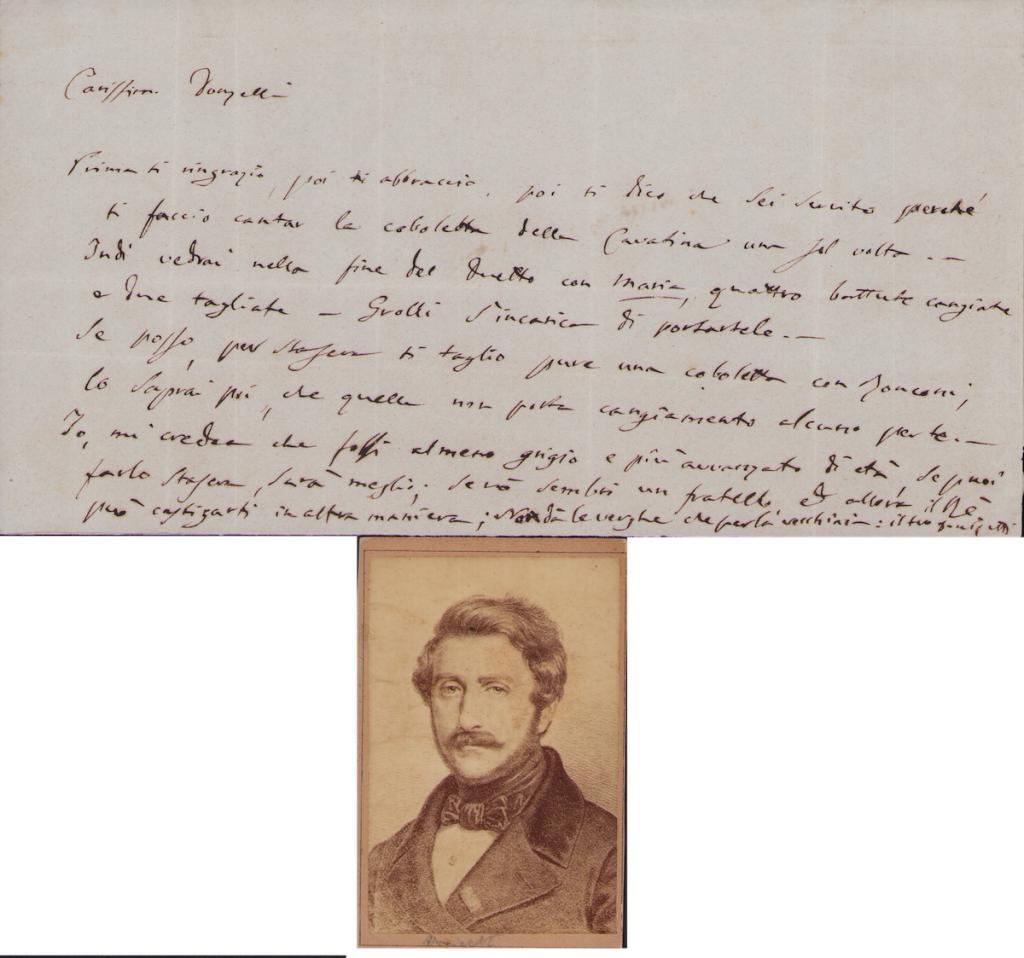 Carissimo Donzelli
Prima ti ringrazio, poi ti abbraccio, poi ti dico che sei servito perché
ti faccio cantar la caboletta della Cavatina una sol volta. —
Indi vedrai nella fine del Duetto con Maria, quattro battute cangiate
e due tagliate — Grolli s'incarica di portartele. —
Se posso, per stasera ti taglio pure una caboletta con Ronconi,
lo saprai poi, che quella non porta cangiamento alcuno per te. —
Io, mi credea che fossi almeno grigio e più avvanzato di età, se puoi
farlo stasera, sarà meglio; se nò sembri un fratello ed allora il Rè
può castigarti in altra maniera; Non dà le verghe che per la vecchiaia: il tuo Donizetti